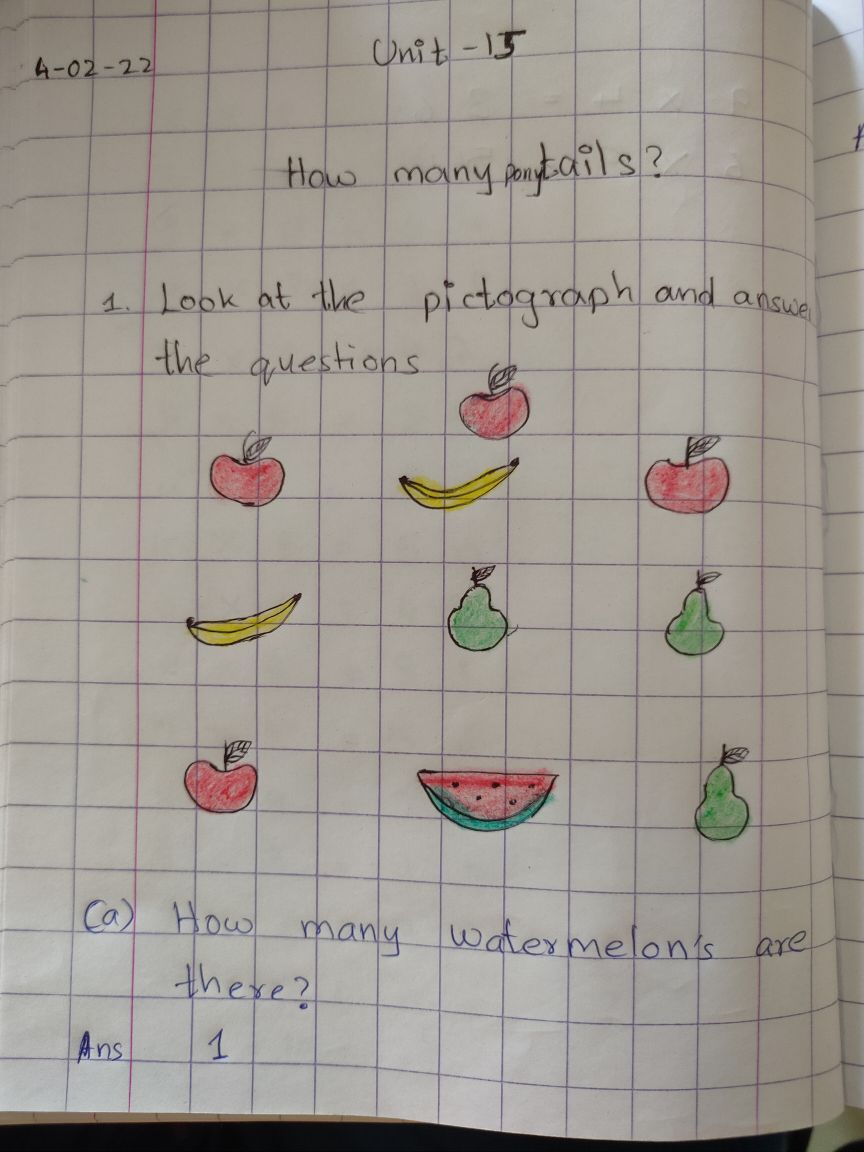 4-02-22
Unit -15
How many ponytails?
1. Look at the pictograph and answe
the questions
(a) How many watermelon's are
there?
Ans 1